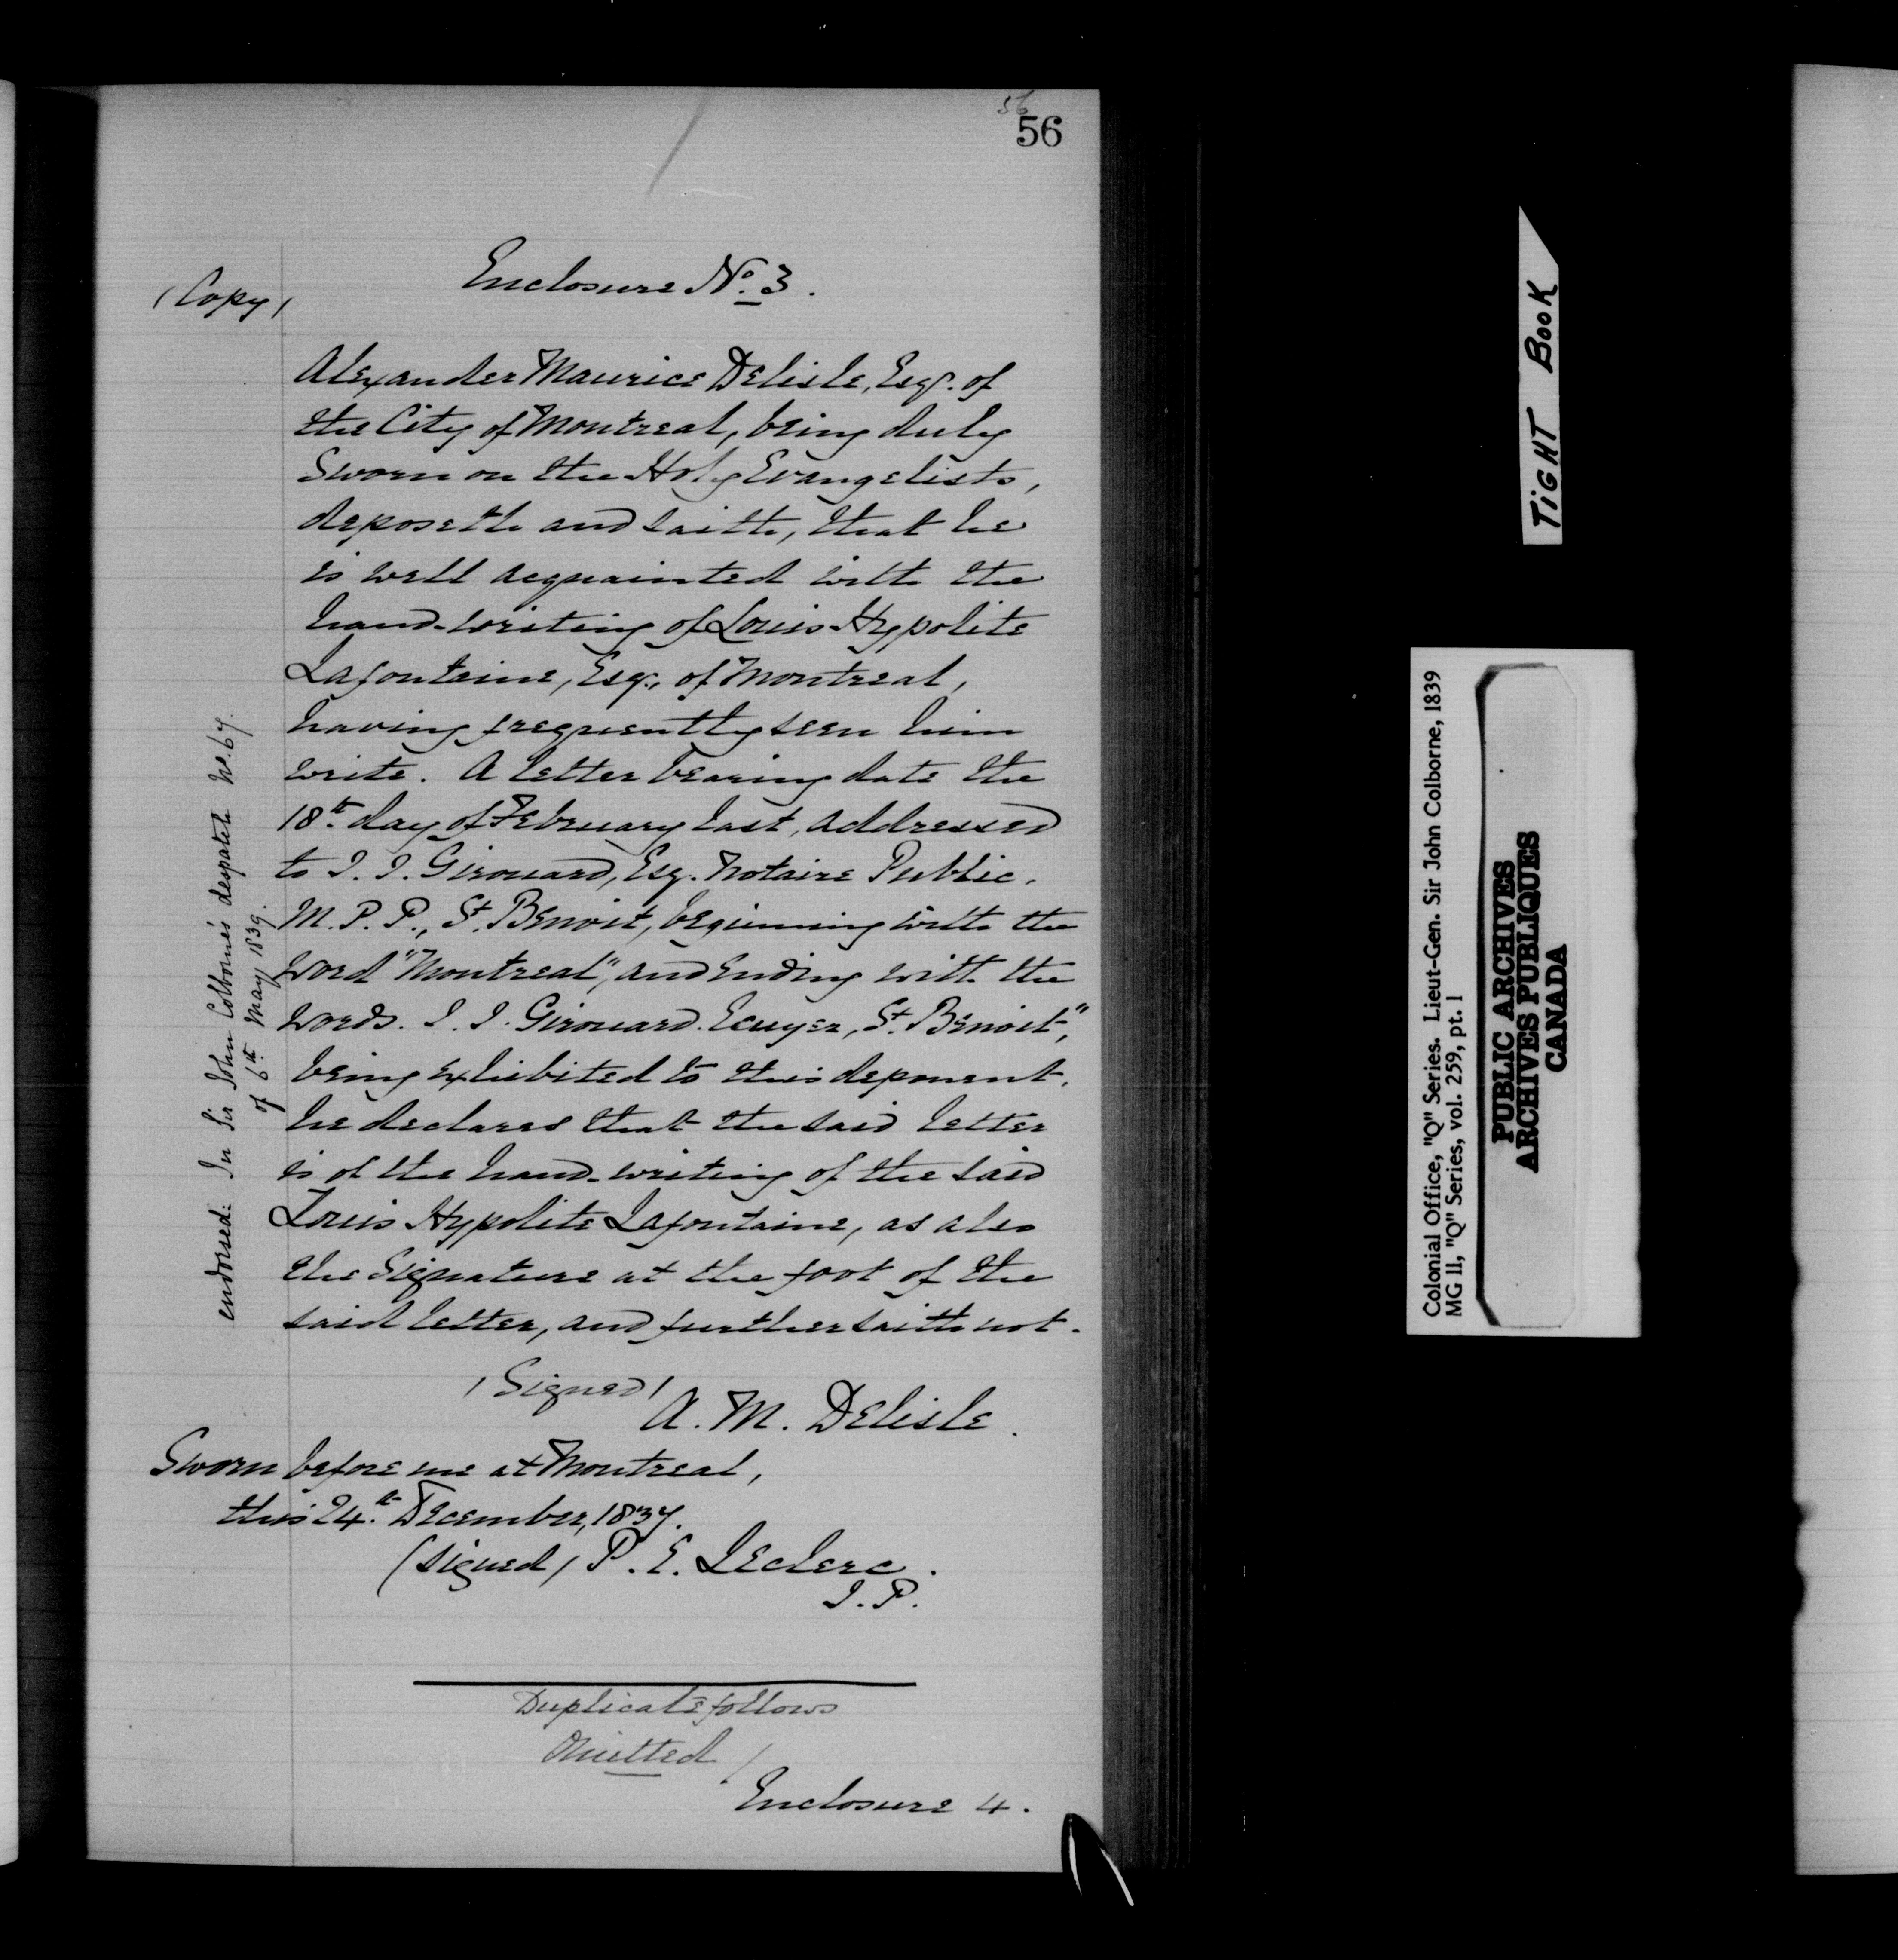 56
56
Enclosure No. 3.
(Copy)
Alexander Maurice Delisle, Esqr. of
the City of Montreal, being duly
Sworn on the Holy Evangelists,
deposeth and saith, that he
is well acquainted with the
hand-writing of Louis Hypolite
Lafontaine, Esq., of Montreal,
having frequently seen him
write. A letter bearing date the
18th. day of February last, addressed
to J. J. Girouard, Esq. Notaire Public.
M. P. P., St. Benoit, beginning with the
word "Montreal", and ending with the
words. J. J. Girouard. Ecuyer, St. Benoit",
being exhibited to this deponent.
he declares that the said letter
is of the hand-writing of the said
Louis Hypolite Lafontaine, as also
the Signature at the foot of the
said letter, and further saith not.
(Signed)
A. M. Delisle.
Sworn before me at Montreal,
this 24th. December, 1837.
(signed) P. E. Leclerc.
J. P.
Duplicate follows
Omitted /
Enclosure 4.
endorsed: In Sir John Colborne's despatch No. 67.
of 6th May 1839.
TIGHT BOOK
Colonial Office, "Q" Series. Lieut-Gen. Sir John Colborne, 1839
MG 11, "Q" Series, vol. 259, pt. 1
PUBLIC ARCHIVES
ARCHIVES PUBLIQUES
CANADA